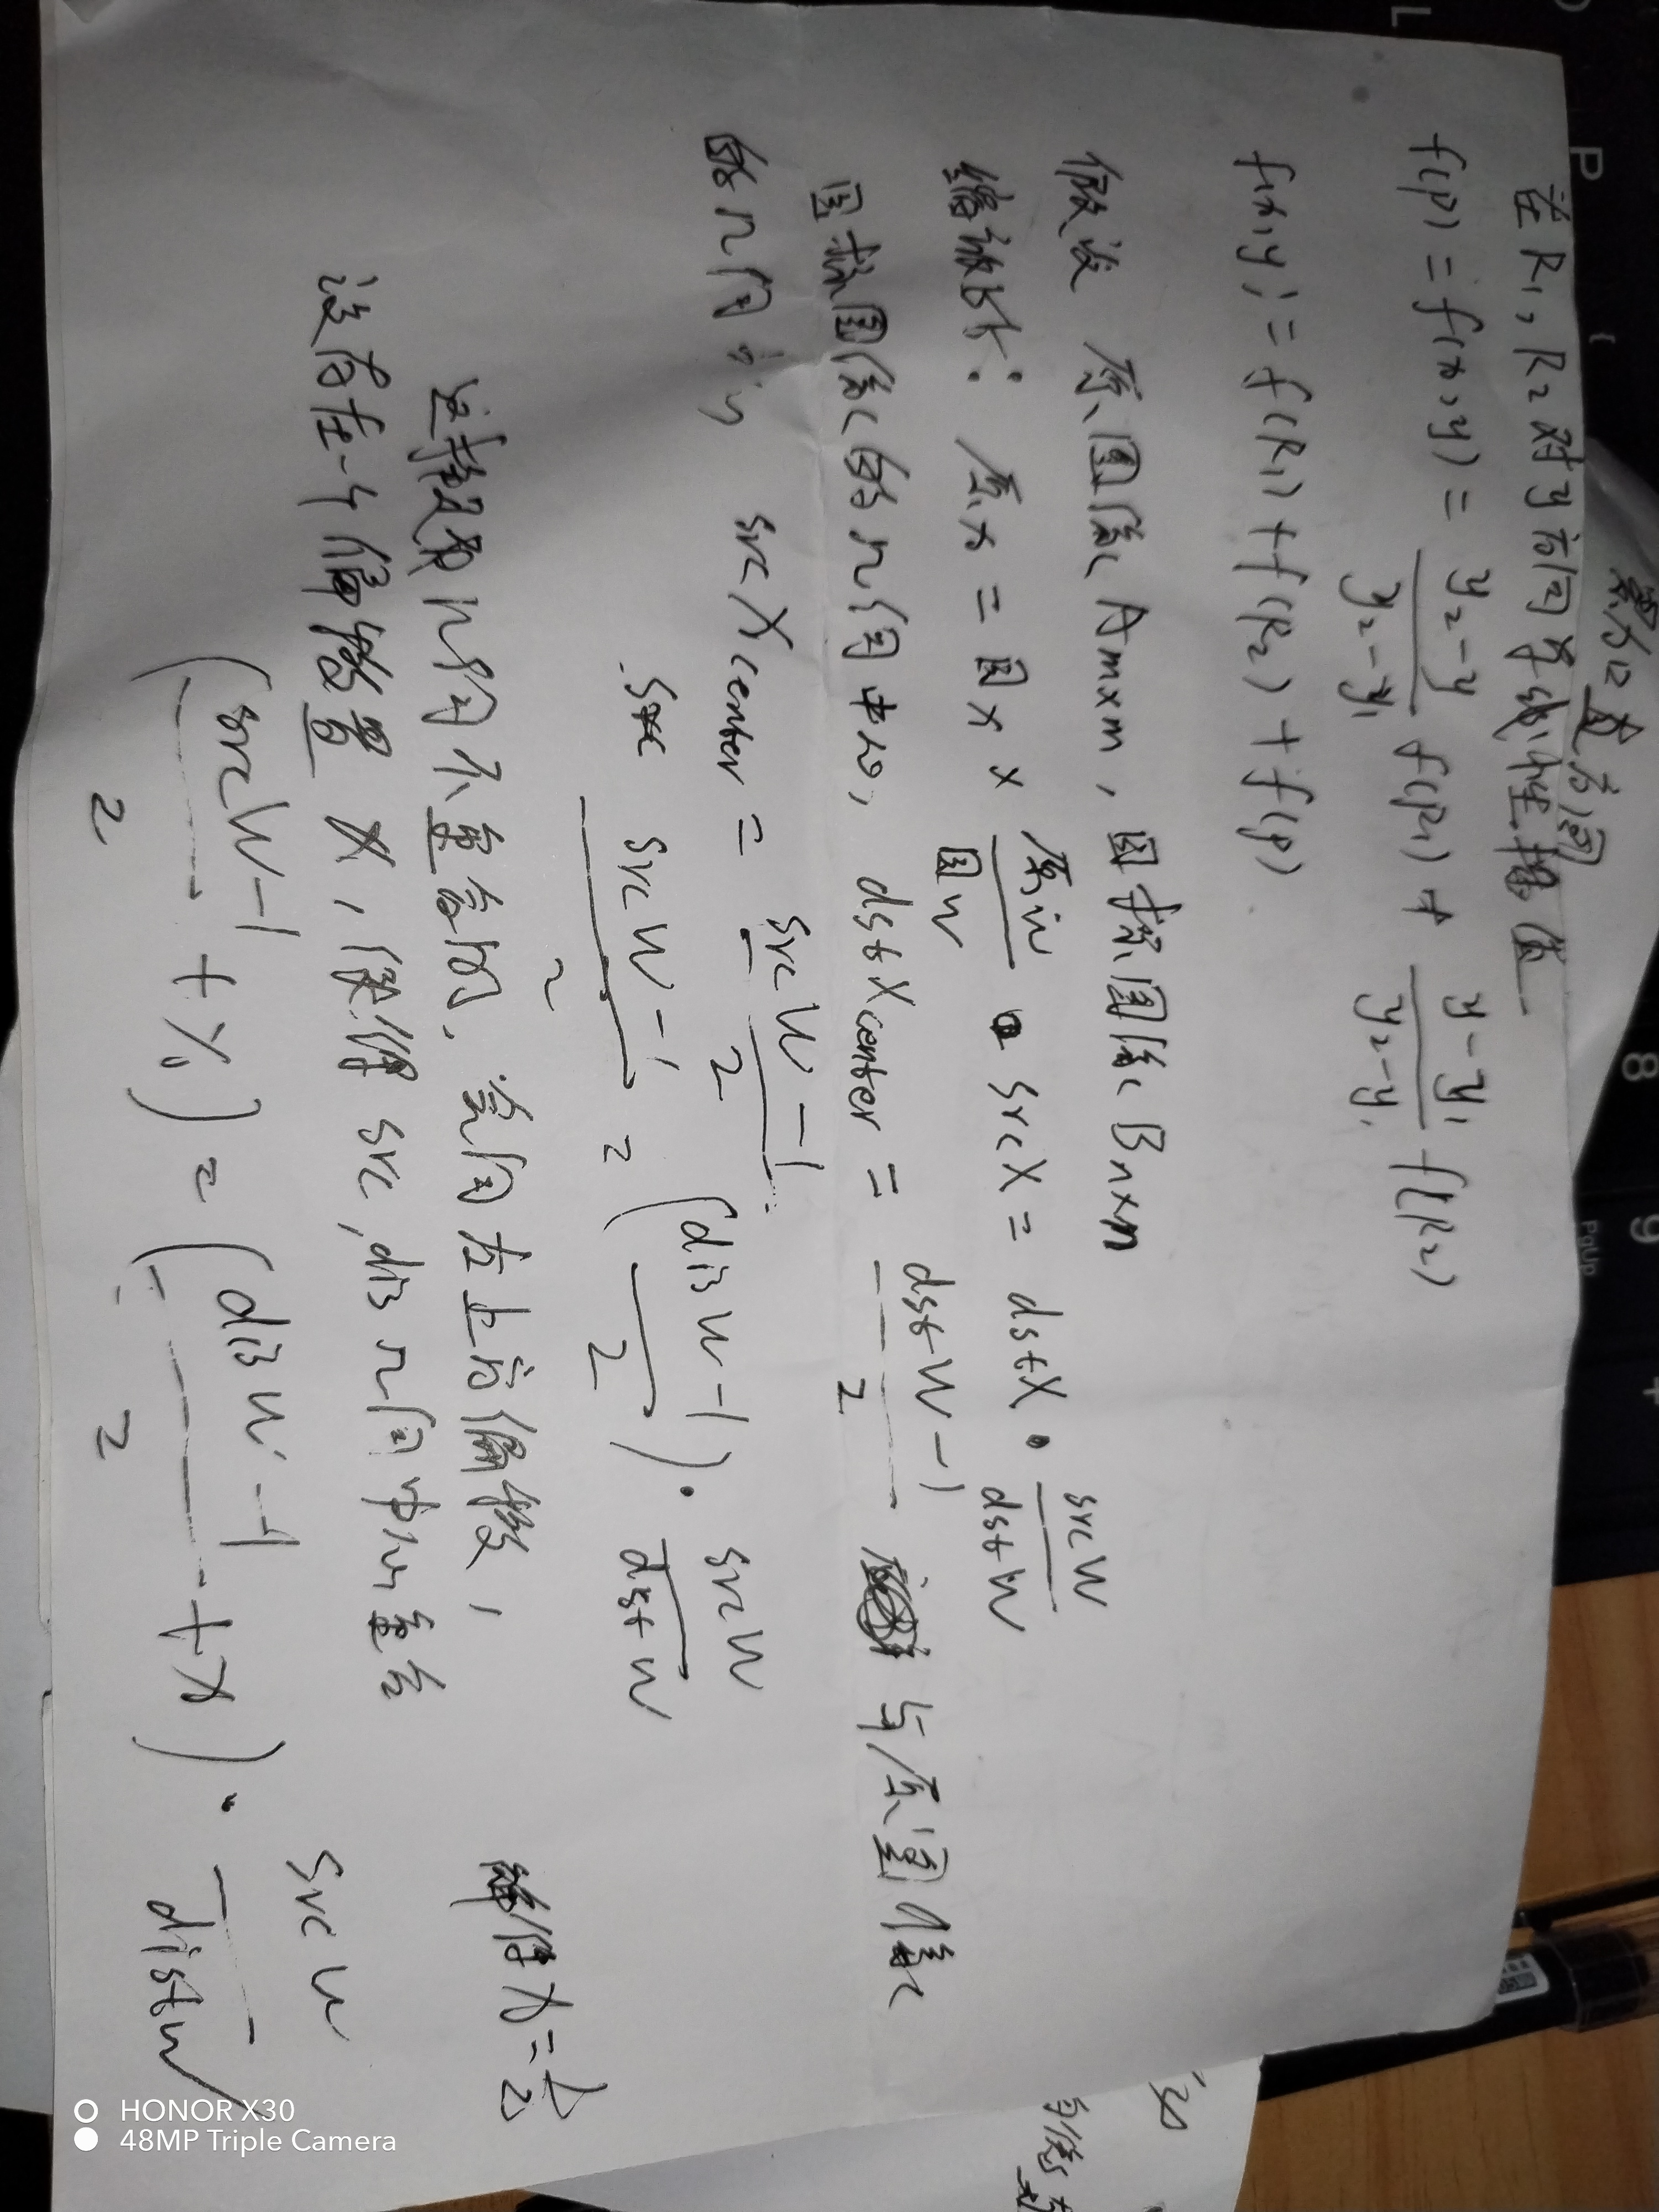 8 9 +
P {
PgUp
L
累加直方图
在R₁,R₂对y方向单线性插值.
f(p) = f(x,y) = (y₂-y)/(y₂-y₁) f(R₁) + (y-y₁)/(y₂-y₁) f(R₂)
f(x,y) = f(R₁)+f(R₂)+f(p)
假设 原图像Am×m, 目标图像Bn×n
缩放比: 原x = 目x × 原w/目w srcX = dstX · srcW/dstW
目标图像的几何中心, dstXcenter = (dstW-1)/2 与原图像
的几何中心 srcXcenter = (srcW-1)/2
(srcW-1)/2 = ((disW-1)/2) · srcW/dstW
几何不重合的, 会向左上方偏移,
解得x=1/2
设存在一个偏移量 x, 使得 src, dis 几何中心重合
((srcW-1)/2 + x) = ((disW-1)/2 + x) · srcW/distW
HONOR X30
48MP Triple Camera